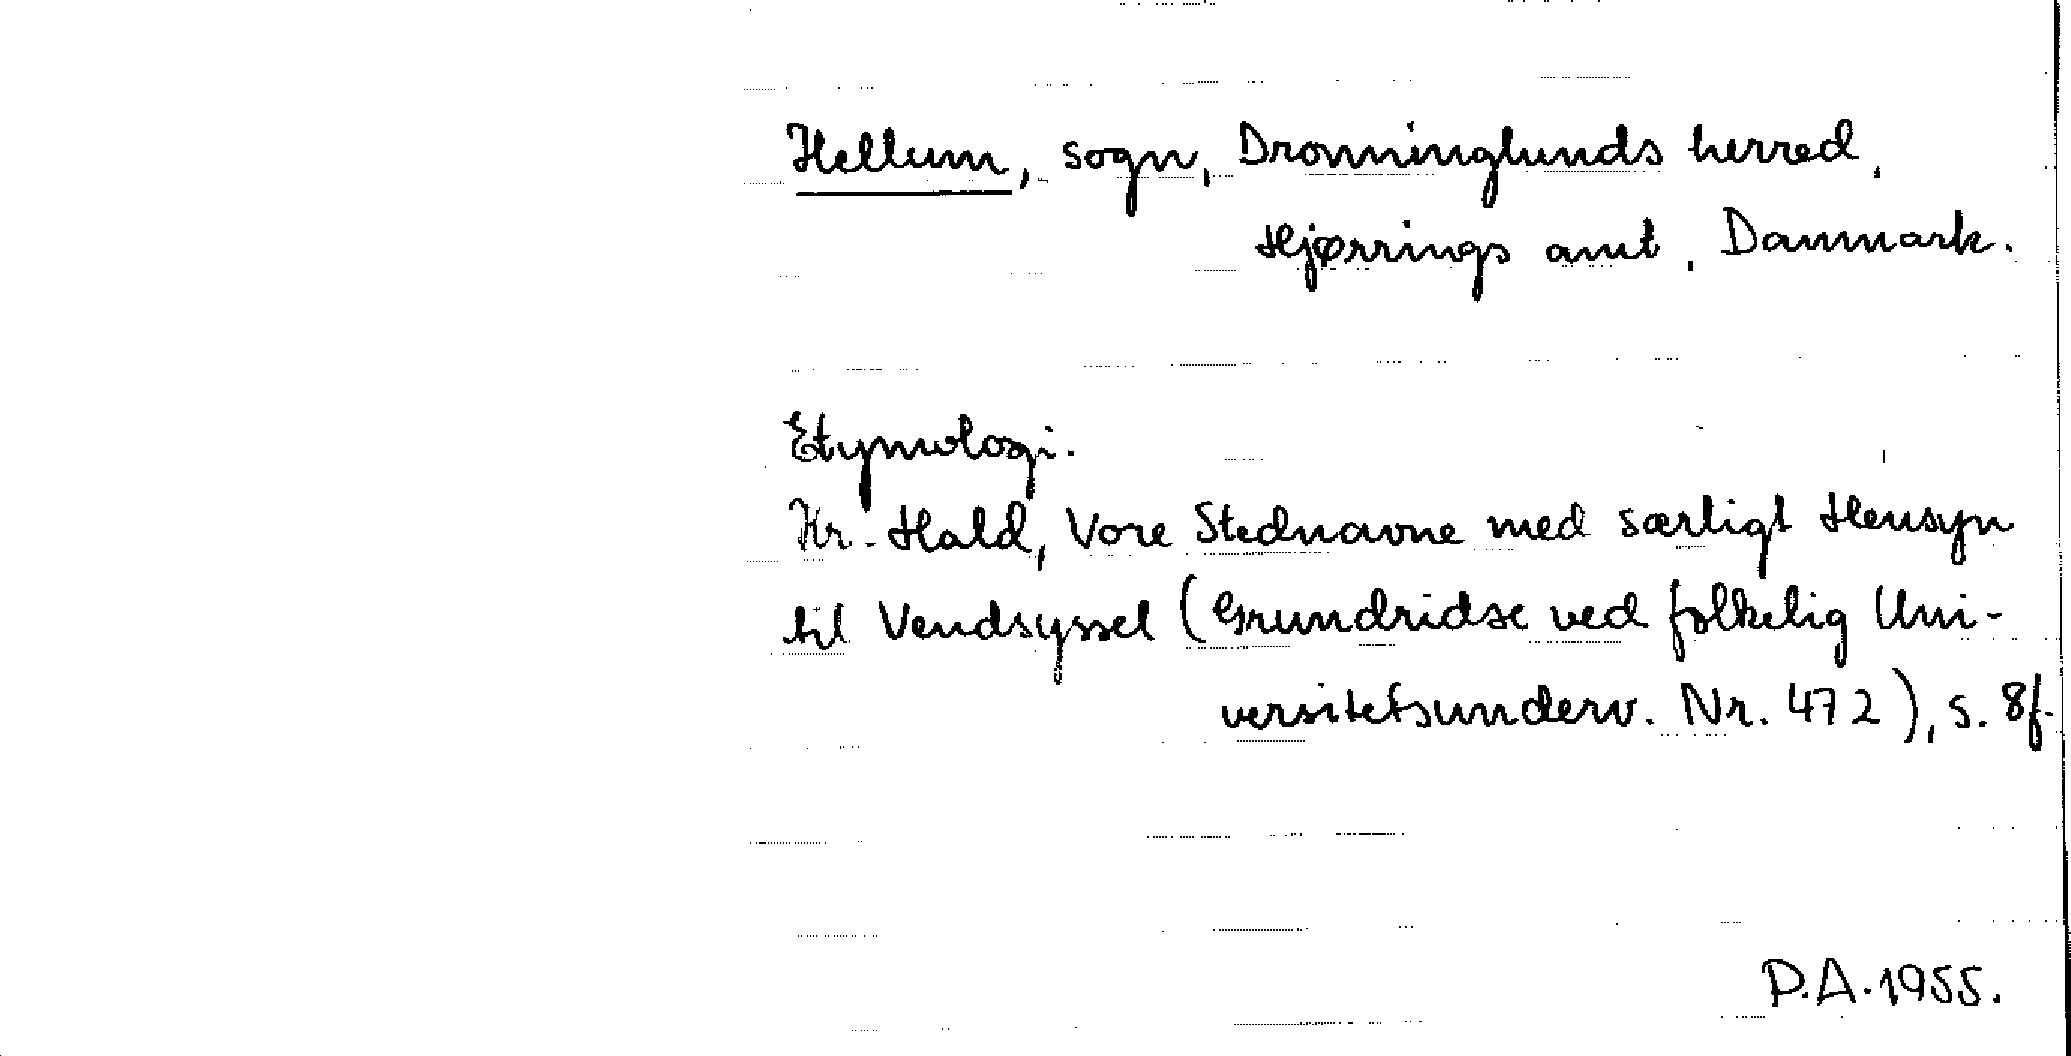 Hellum, sogn, Dronninglunds herred,
Hjørrings amt, Danmark.
Etymologi.
Kr. Hald, Vore Stednavne med særligt Hensyn
til Vendsyssel (Grundridse ved folkelig Uni-
versitetsunderv. Nr. 472), s. 8f.
P.A. 1955.